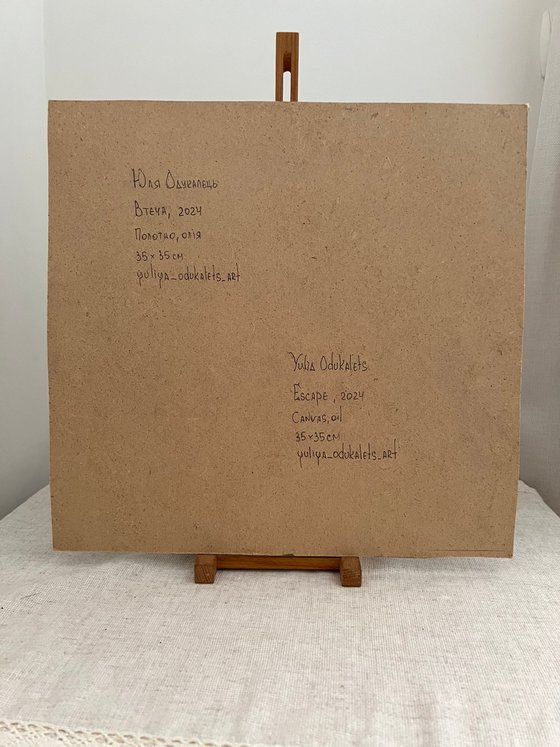 Юля Одукалець
Втеча, 2024
Полотно, олія
35×35 см
yuliya_odukalets_art
Yulia Odukalets
Escape, 2024
Canvas, oil
35×35 cm
yuliya_odukalets_art